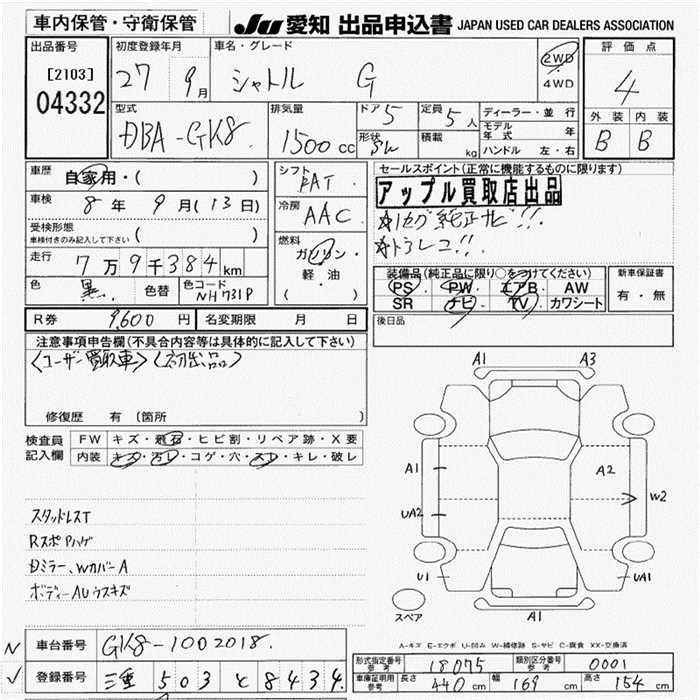 車内保管・守衛保管
JU 愛知 出品申込書 JAPAN USED CAR DEALERS ASSOCIATION
出品番号 [2103] 04332
初度登録年月 27 9月
車名・グレード シャトル G
2WD ・ 4WD
評価点 4
外装 内装
B B
型式 DBA-GK8
排気量 1500cc
ドア 5
形状
定員 5人
積載 kg
ディーラー・並行
モデル年式 年
ハンドル 左・右
車歴 自家用・( )
車検 8年 9月(13日)
受検形態 車検付きのみ記入して下さい ( )
走行 7万9千384km
色 黒 色替
色コード NH731P
シフト FAT
冷房 AAC
燃料 ガソリン・軽・油 ( )
セールスポイント(正常に機能するものに限ります)
アップル買取店出品
☆1セグ純正ナビ!!
☆ドラレコ!!
装備品(純正品に限り○をつけてください)
PS・PW・エアB・AW
SR ナビ・TV・カワシート
新車保証書 有・無
後日品
R券 9,600円
名変期限 月 日
注意事項申告欄(不具合内容等は具体的に記入して下さい)
<ユーザー買取車> <初出品>
修復歴 有(箇所 )
検査員記入欄
FW キズ・飛石・ヒビ割・リペア跡・X要
内装 キズ・汚レ・コゲ・穴・スレ・キレ・破レ
スタッドレスT
RスポPハゲ
Dミラー、WカバーA
ボディーAUウスキズ
A1 A3
A1 A2
UA2 W2
U1 UA1
A1
スペア
A-キズ E-エクボ U-凹み W-補修跡 S-サビ C-腐食 XX-交換済
N 車台番号 GK8-1002018
✓ 登録番号 三重 503 と 8434
形式指定番号 参考 18075
類別区分番号 参考 0001
車庫証明用 参考 長さ 440cm 幅 169cm 高さ 154cm